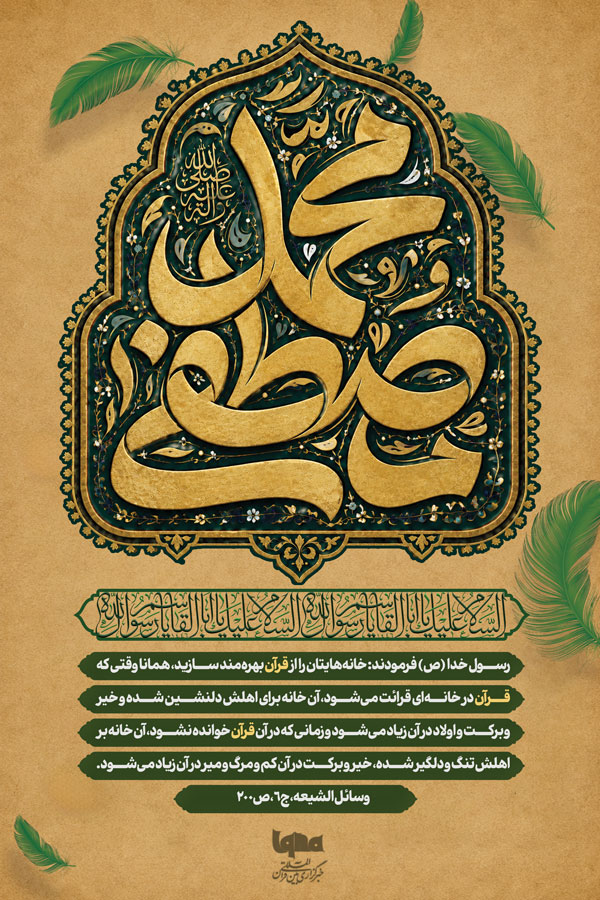 محمد
صلی الله علیه و آله
مصطفی
السلام علیک یا اباالقاسم یا رسول الله السلام علیک یا اباالقاسم یا رسول الله
رسول خدا (ص) فرمودند: خانه‌هایتان را از قرآن بهره‌مند سازید، همانا وقتی که
قرآن در خانه‌ای قرائت می‌شود، آن خانه برای اهلش دلنشین شده و خیر
و برکت و اولاد در آن زیاد می‌شود و زمانی که در آن قرآن خوانده نشود، آن خانه بر
اهلش تنگ و دلگیر شده، خیر و برکت در آن کم و مرگ و میر در آن زیاد می‌شود.
وسائل الشیعه، ج۶، ص۲۰۰
iqna
خبرگزاری بین المللی قرآن